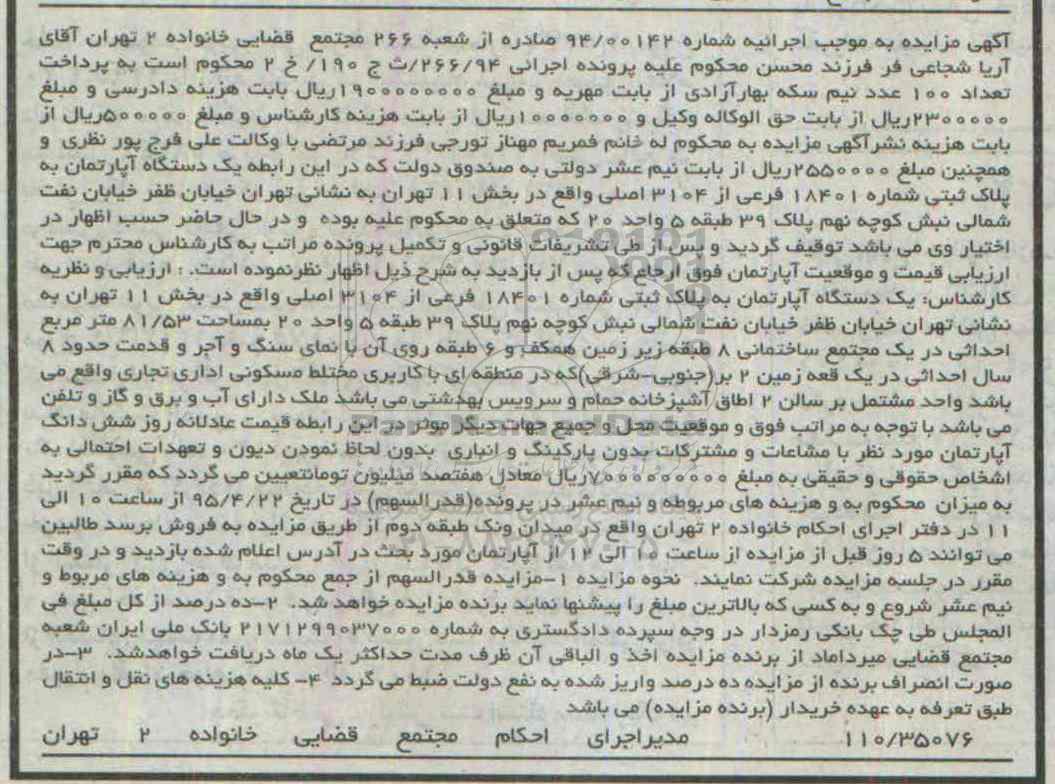 آگهی مزایده به موجب اجرائیه شماره ۹۴/۰۰۱۴۲ صادره از شعبه ۲۶۶ مجتمع قضایی خانواده ۲ تهران آقای
آریا شجاعی فر فرزند محسن محکوم علیه پرونده اجرائی ۲۶۶/۹۴/ث ج ۱۹۰/ خ ۲ محکوم است به پرداخت
تعداد ۱۰۰ عدد نیم سکه بهارآزادی از بابت مهریه و مبلغ ۱۹۰۰۰۰۰۰۰۰ریال بابت هزینه دادرسی و مبلغ
۲۳۰۰۰۰۰ریال از بابت حق الوکاله وکیل و ۱۰۰۰۰۰۰۰ریال از بابت هزینه کارشناس و مبلغ ۵۰۰۰۰۰ریال از
بابت هزینه نشرآگهی مزایده به محکوم له خانم فمریم مهناز تورجی فرزند مرتضی با وکالت علی فرج پور نظری و
همچنین مبلغ ۲۵۵۰۰۰۰۰ریال از بابت نیم عشر دولتی به صندوق دولت که در این رابطه یک دستگاه آپارتمان به
پلاک ثبتی شماره ۱۸۴۰۱ فرعی از ۳۱۰۴ اصلی واقع در بخش ۱۱ تهران به نشانی تهران خیابان ظفر خیابان نفت
شمالی نبش کوچه نهم پلاک ۳۹ طبقه ۵ واحد ۲۰ که متعلق به محکوم علیه بوده و در حال حاضر حسب اظهار در
اختیار وی می باشد توقیف گردید و پس از طی تشریفات قانونی و تکمیل پرونده مراتب به کارشناس محترم جهت
ارزیابی قیمت و موقعیت آپارتمان فوق ارجاع که پس از بازدید به شرح ذیل اظهار نظرنموده است. : ارزیابی و نظریه
کارشناس: یک دستگاه آپارتمان به پلاک ثبتی شماره ۱۸۴۰۱ فرعی از ۳۱۰۴ اصلی واقع در بخش ۱۱ تهران به
نشانی تهران خیابان ظفر خیابان نفت شمالی نبش کوچه نهم پلاک ۳۹ طبقه ۵ واحد ۲۰ بمساحت ۸۱/۵۳ متر مربع
احداثی در یک مجتمع ساختمانی ۸ طبقه زیر زمین همکف و ۶ طبقه روی آن با نمای سنگ و آجر و قدمت حدود ۸
سال احداثی در یک قعه زمین ۲ بر(جنوبی-شرقی)که در منطقه ای با کاربری مختلط مسکونی اداری تجاری واقع می
باشد واحد مشتمل بر سالن ۲ اطاق آشپزخانه حمام و سرویس بهداشتی می باشد ملک دارای آب و برق و گاز و تلفن
می باشد با توجه به مراتب فوق و موقعیت محل و جمیع جهات دیگر موثر در این رابطه قیمت عادلانه روز شش دانگ
آپارتمان مورد نظر با مشاعات و مشترکات بدون پارکینگ و انباری بدون لحاظ نمودن دیون و تعهدات احتمالی به
اشخاص حقوقی و حقیقی به مبلغ ۷۰۰۰۰۰۰۰۰۰ریال معادل هفتصد میلیون تومانتعیین می گردد که مقرر گردید
به میزان محکوم به و هزینه های مربوطه و نیم عشر در پرونده(قدرالسهم) در تاریخ ۹۵/۴/۲۲ از ساعت ۱۰ الی
۱۱ در دفتر اجرای احکام خانواده ۲ تهران واقع در میدان ونک طبقه دوم از طریق مزایده به فروش برسد طالبین
می توانند ۵ روز قبل از مزایده از ساعت ۱۰ الی ۱۲ از آپارتمان مورد بحث در آدرس اعلام شده بازدید و در وقت
مقرر در جلسه مزایده شرکت نمایند. نحوه مزایده ۱-مزایده قدرالسهم از جمع محکوم به و هزینه های مربوط و
نیم عشر شروع و به کسی که بالاترین مبلغ را پیشنها نماید برنده مزایده خواهد شد. ۲-ده درصد از کل مبلغ فی
المجلس طی چک بانکی رمزدار در وجه سپرده دادگستری به شماره ۲۱۷۱۲۹۹۰۳۷۰۰۰ بانک ملی ایران شعبه
مجتمع قضایی میرداماد از برنده مزایده اخذ و الباقی آن ظرف مدت حداکثر یک ماه دریافت خواهدشد. ۳-در
صورت انصراف برنده از مزایده ده درصد واریز شده به نفع دولت ضبط می گردد ۴- کلیه هزینه های نقل و انتقال
طبق تعرفه به عهده خریدار (برنده مزایده) می باشد
۱۱۰/۳۵۰۷۶ مدیراجرای احکام مجتمع قضایی خانواده ۲ تهران